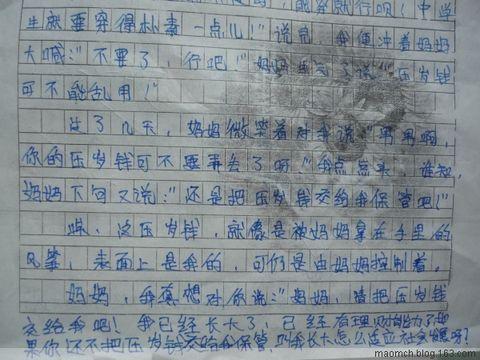 就行吧！中学
生就要穿得朴素一点儿！”说完，我便冲着妈妈
大喊：“不要了，行吧！”妈妈 了说：“压岁钱
可不能乱用！”
过了几天，妈妈微笑着对我说：“男男啊，
你的压岁钱可不要弄丢了呀。”我点点头，谁知，
妈妈下句又说：“还是把压岁钱交给我保管吧！”
哎，这压岁钱，就像是被妈妈拿在手里的
风筝，表面上是我的，可仍是由妈妈控制着。
妈妈，我真想对你说：“妈妈，请把压岁钱
交给我吧！我已经长大了，已经有理财能力了如
果你还不把压岁钱交给我保管，叫我长大怎么适应社会 呀？
maomch.blog.163.com